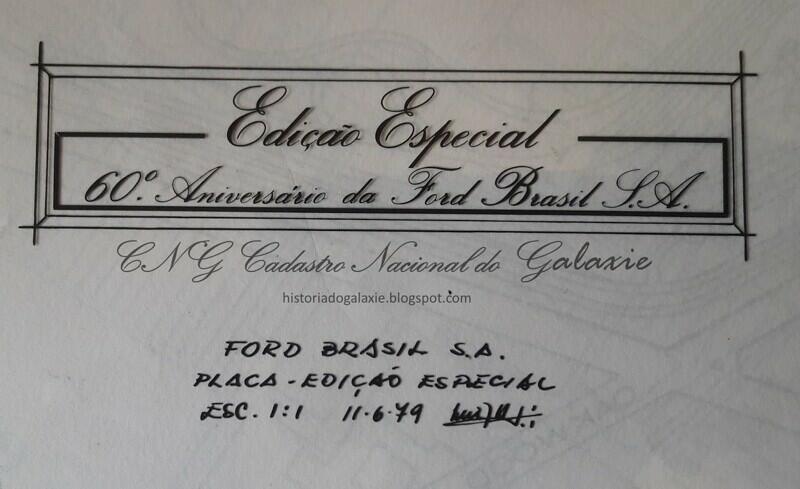 Edição Especial
60.º Aniversário da Ford Brasil S.A.
CNG Cadastro Nacional do Galaxie
historiadogalaxie.blogspot.com
FORD BRASIL S.A.
PLACA - EDIÇÃO ESPECIAL
ESC. 1:1 11.6.79